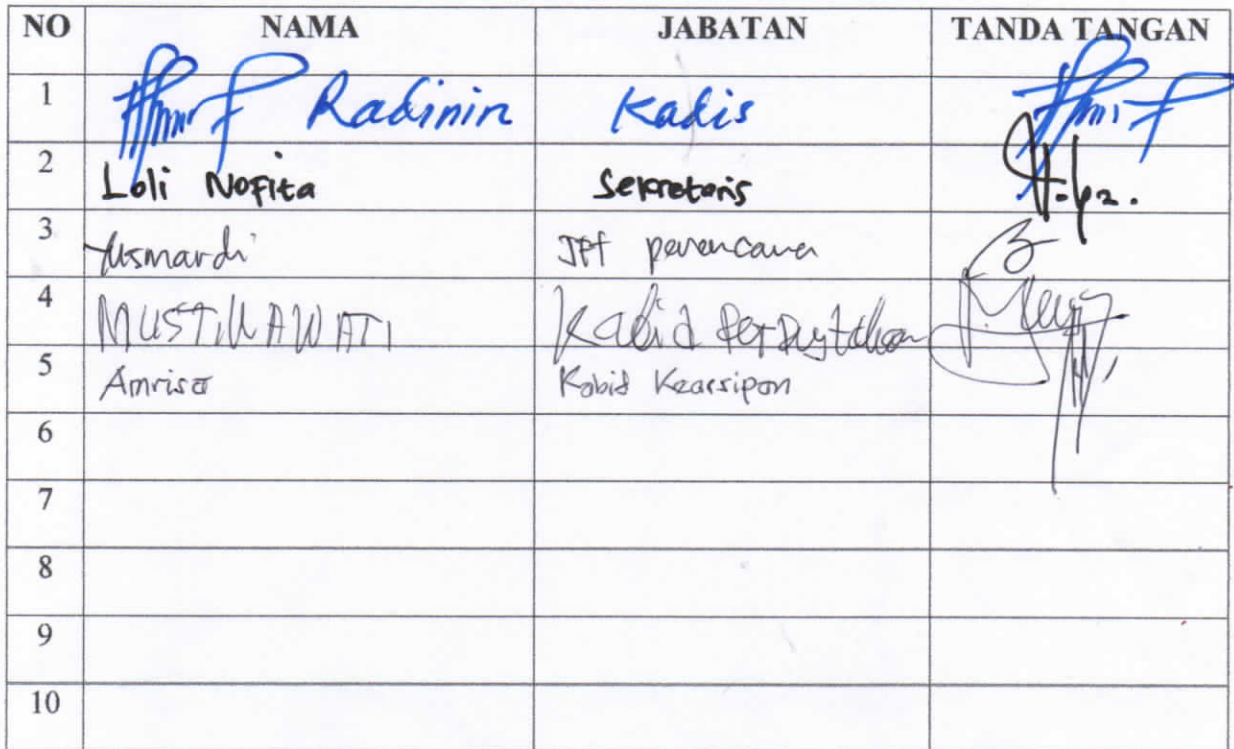 NO NAMA JABATAN TANDA TANGAN
1 Radinin Kadis
2 Loli Nofita Sekretaris
3 Yusmardi JFT perencana
4 MUSTIKAWATI Kabid Perpustakaan
5 Amrisa Kabid Kearsipan
6
7
8
9
10